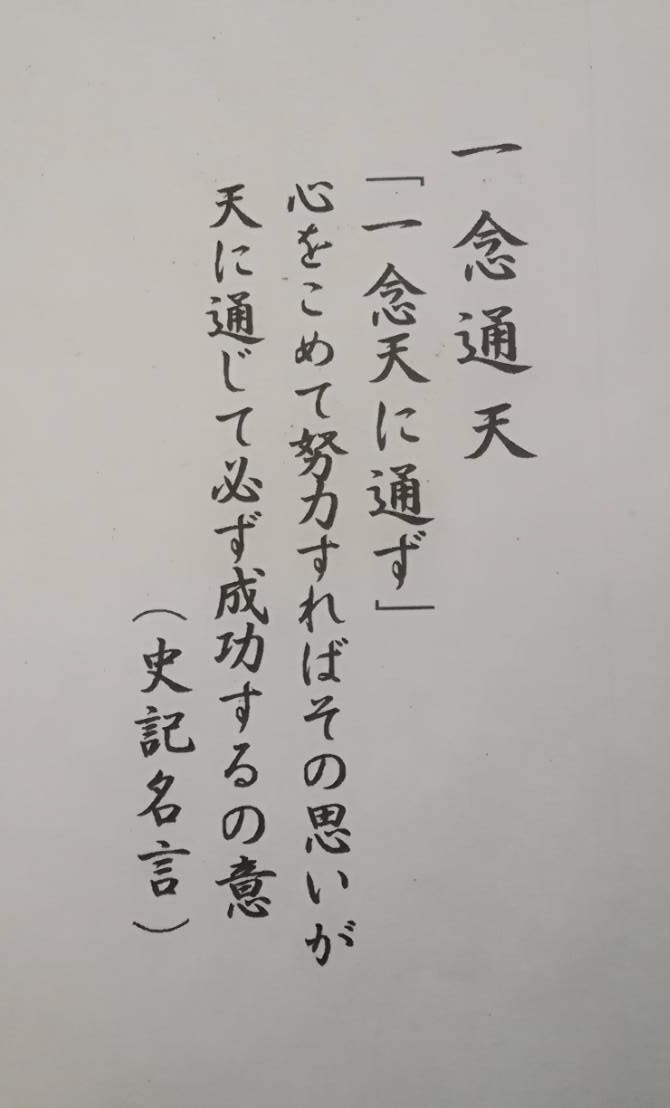 一念通天
「一念天に通ず」
心をこめて努力すればその思いが
天に通じて必ず成功するの意
（史記名言）